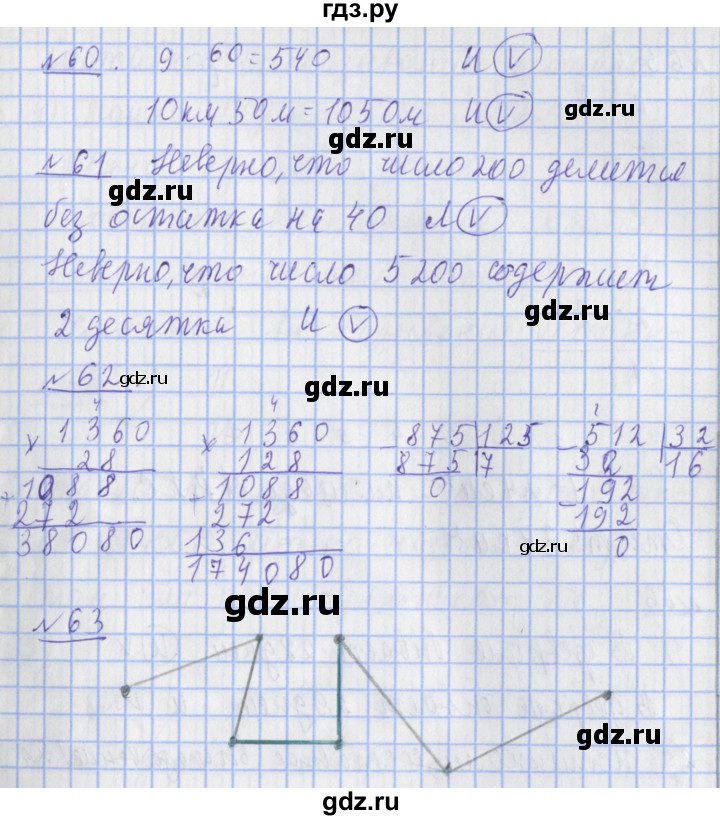 гдз.ру
№60. 9 · 60 = 540 И V
10 км 50 м = 1050 м И V
gdz.ru
gdz.ru
№61 Неверно, что число 200 делится
gdz.ru
без остатка на 40 Л V
gdz.ru
Неверно, что число 5200 содержит
2 десятка И V
gdz.ru
№62
gdz.ru
gdz.ru
4 4 1
× 1360 × 1360 - 875 | 125 - 512 | 32
28 128 875 7 32 16
+ 1088 + 1088 0 - 192
272 272 192
38080 136 0
174080
gdz.ru
gdz.ru
№63
gdz.ru
gdz.ru